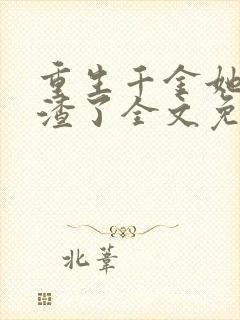 重生千金她
渣了全文免
北葦